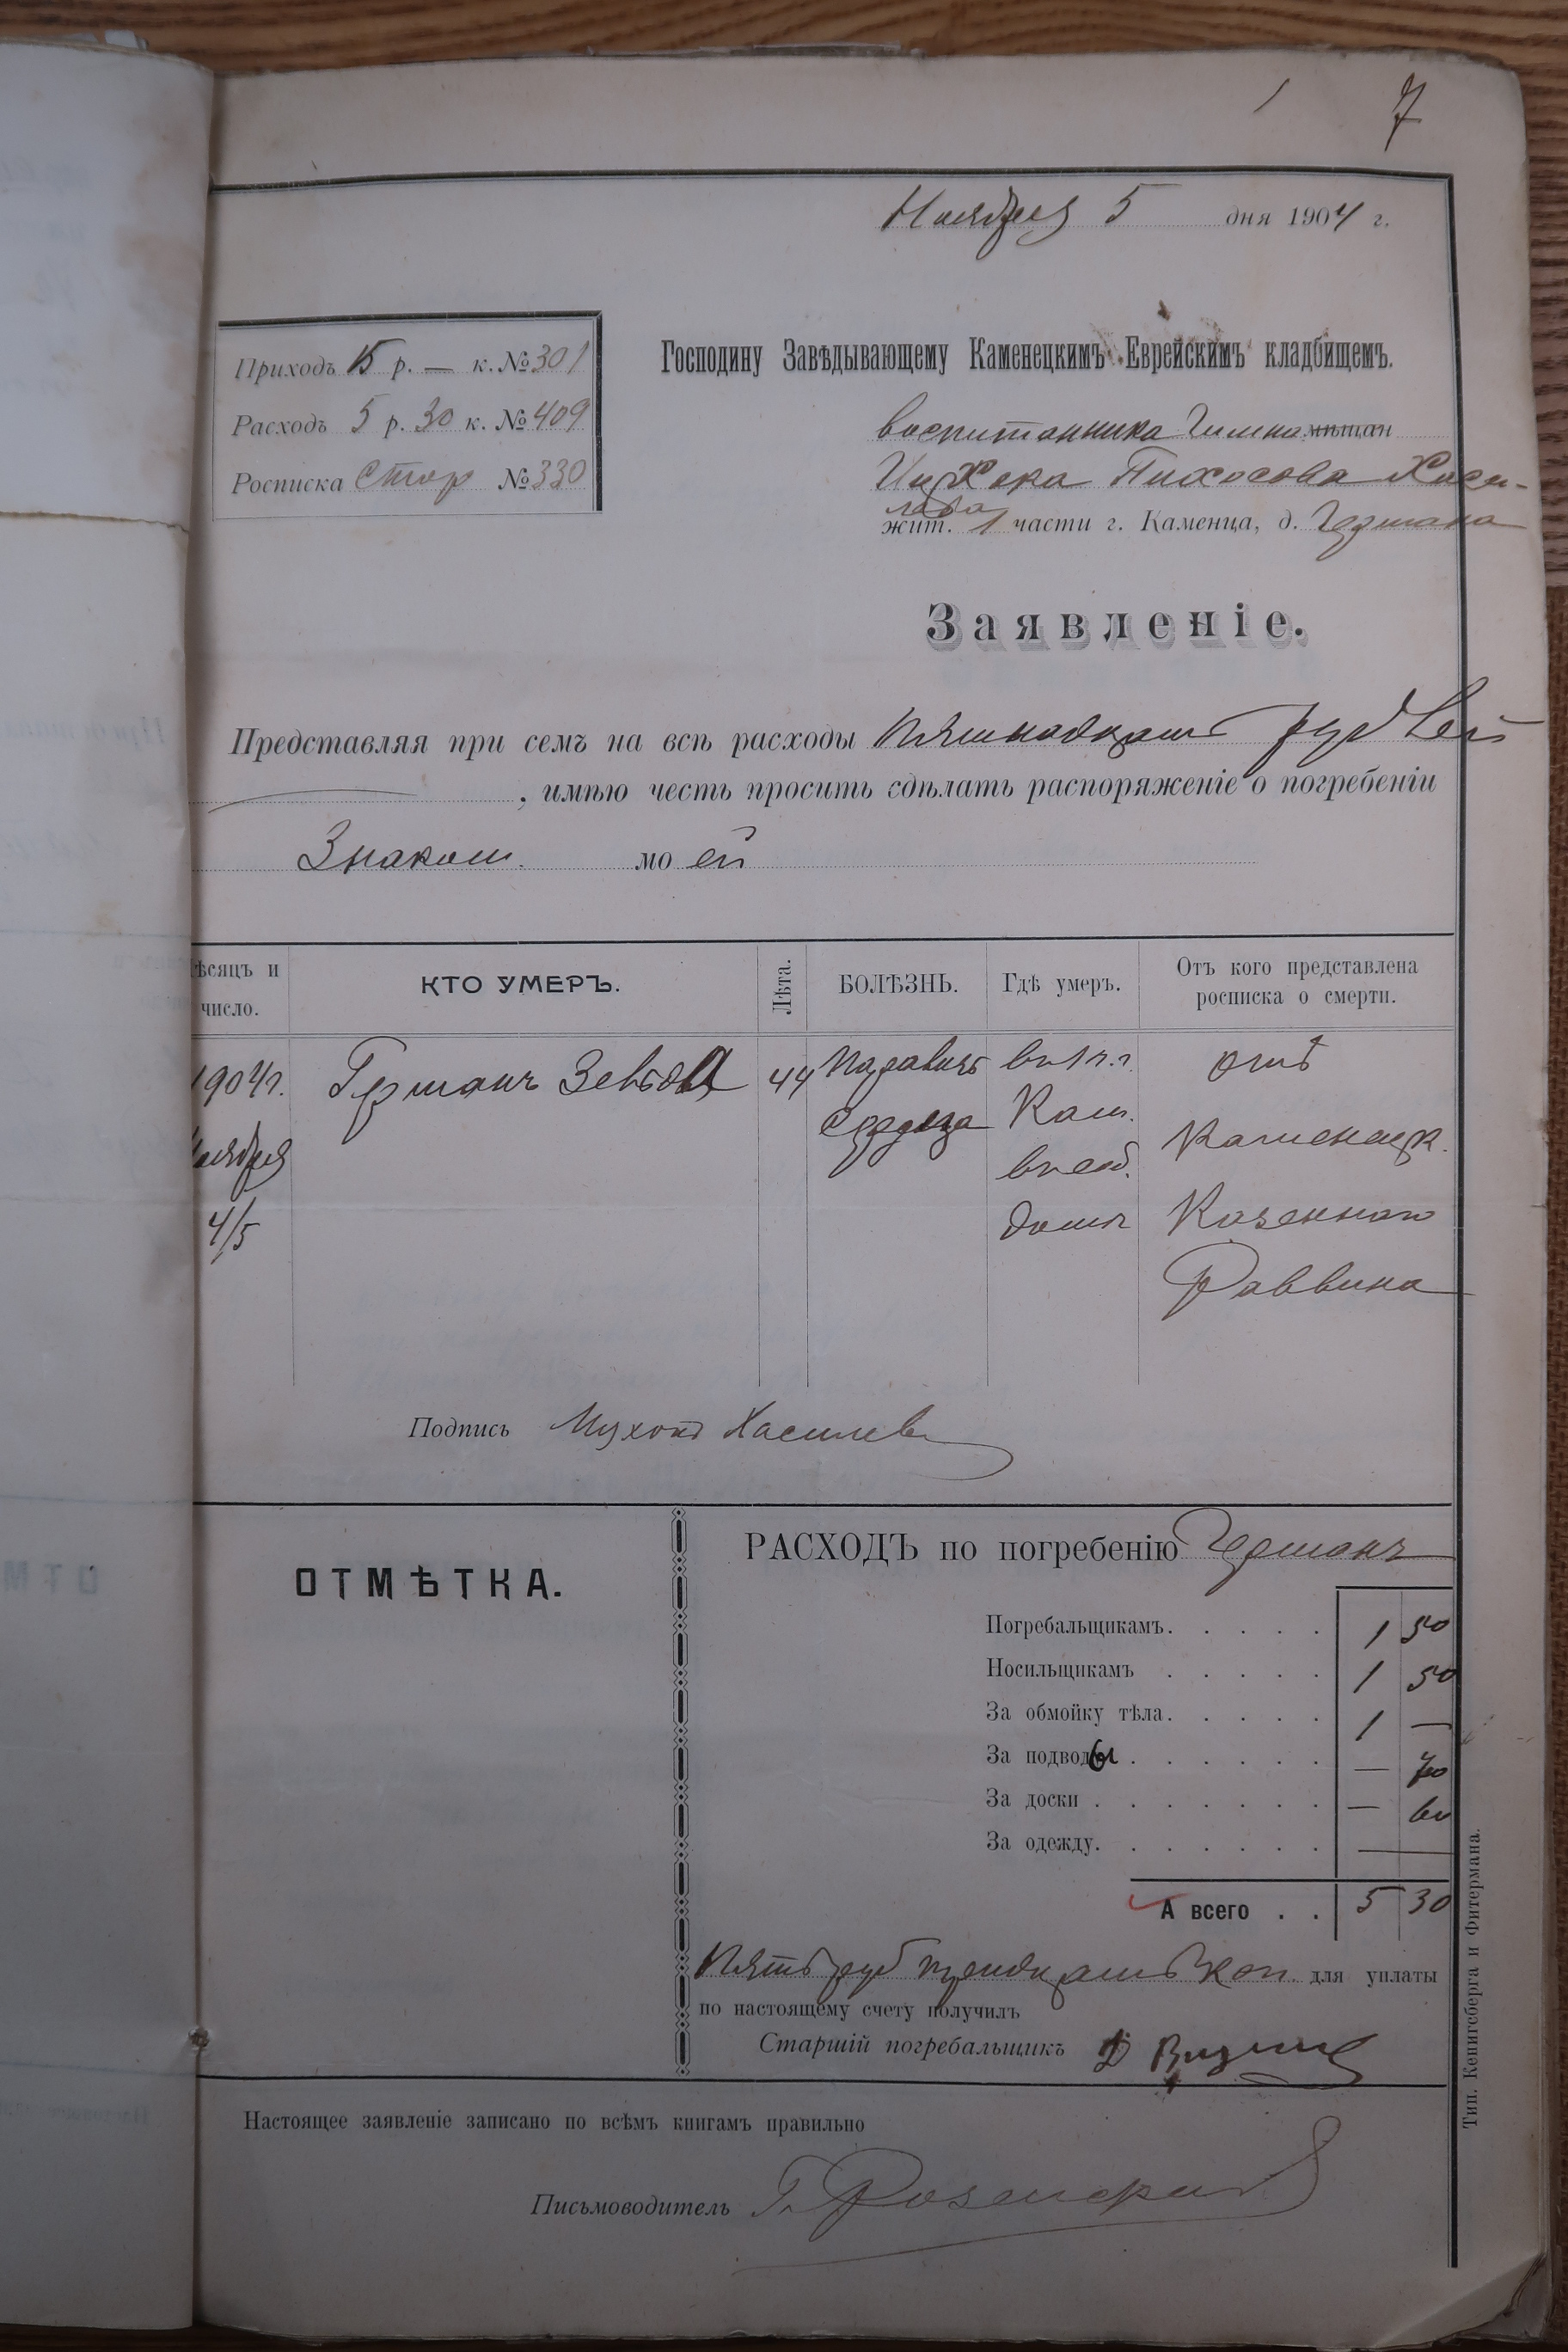 7
Ноября 5 дня 1904 г.
Приходъ 15 р. — к. № 301
Расходъ 5 р. 30 к. № 409
Росписка Стар № 330
Господину Завѣдывающему Каменецкимъ Еврейскимъ кладбищемъ.
воспитанника Гимна. мѣщан
Хаси-
лева
жит. 1 части г. Каменца, д. Германа
Заявленіе.
Представляя при семъ на всѣ расходы Пятнадцать рублей
, имѣю честь просить сдѣлать распоряженіе о погребеніи
Знаком. моей
ѣсяцъ и число.
КТО УМЕРЪ.
Лѣта.
БОЛѢЗНЬ.
Гдѣ умеръ.
Отъ кого представлена росписка о смерти.
1904 г. Ноября 4/5
Германъ
44
Параличъ Сердца
въ 1 ч. г. Кам. въ соб. домѣ
отъ Каменецк. Казеннаго Раввина
Подпись
РАСХОДЪ по погребенію Германъ
ОТМѢТКА.
Погребальщикамъ. 1 50
Носильщикамъ 1 50
За обмойку тѣла. 1 —
За подводы — 70
За доски — 60
За одежду. —
А всего 5 30
Пять руб тридцать коп для уплаты
по настоящему счету получилъ
Старшій погребальщикъ
Настоящее заявленіе записано по всѣмъ книгамъ правильно
Письмоводитель
Тип. Кенигсберга и Фитермана.